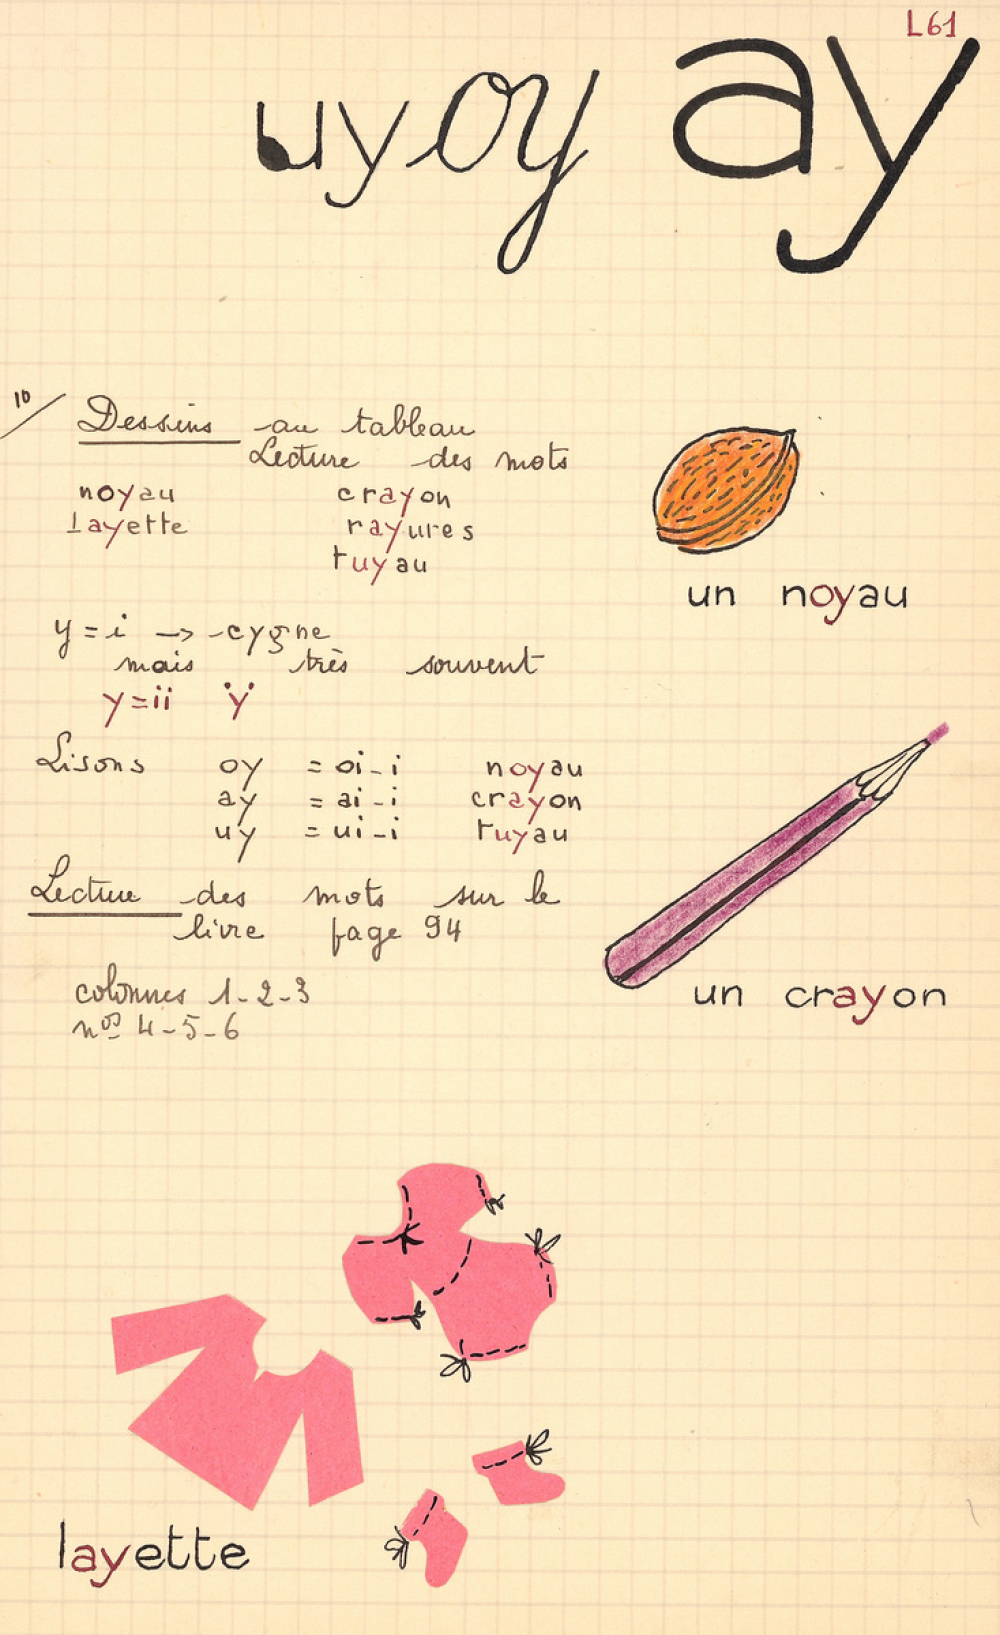 L61
uy oy ay
10/ Dessins au tableau
Lecture des mots
noyau crayon
layette rayures
tuyau
un noyau
y = i -> cygne
mais très souvent
y = ii ÿ
Lisons oy = oi - i noyau
ay = ai - i crayon
uy = ui - i tuyau
Lecture des mots sur le
livre page 94
un crayon
colonnes 1 - 2 - 3
nos 4 - 5 - 6
layette